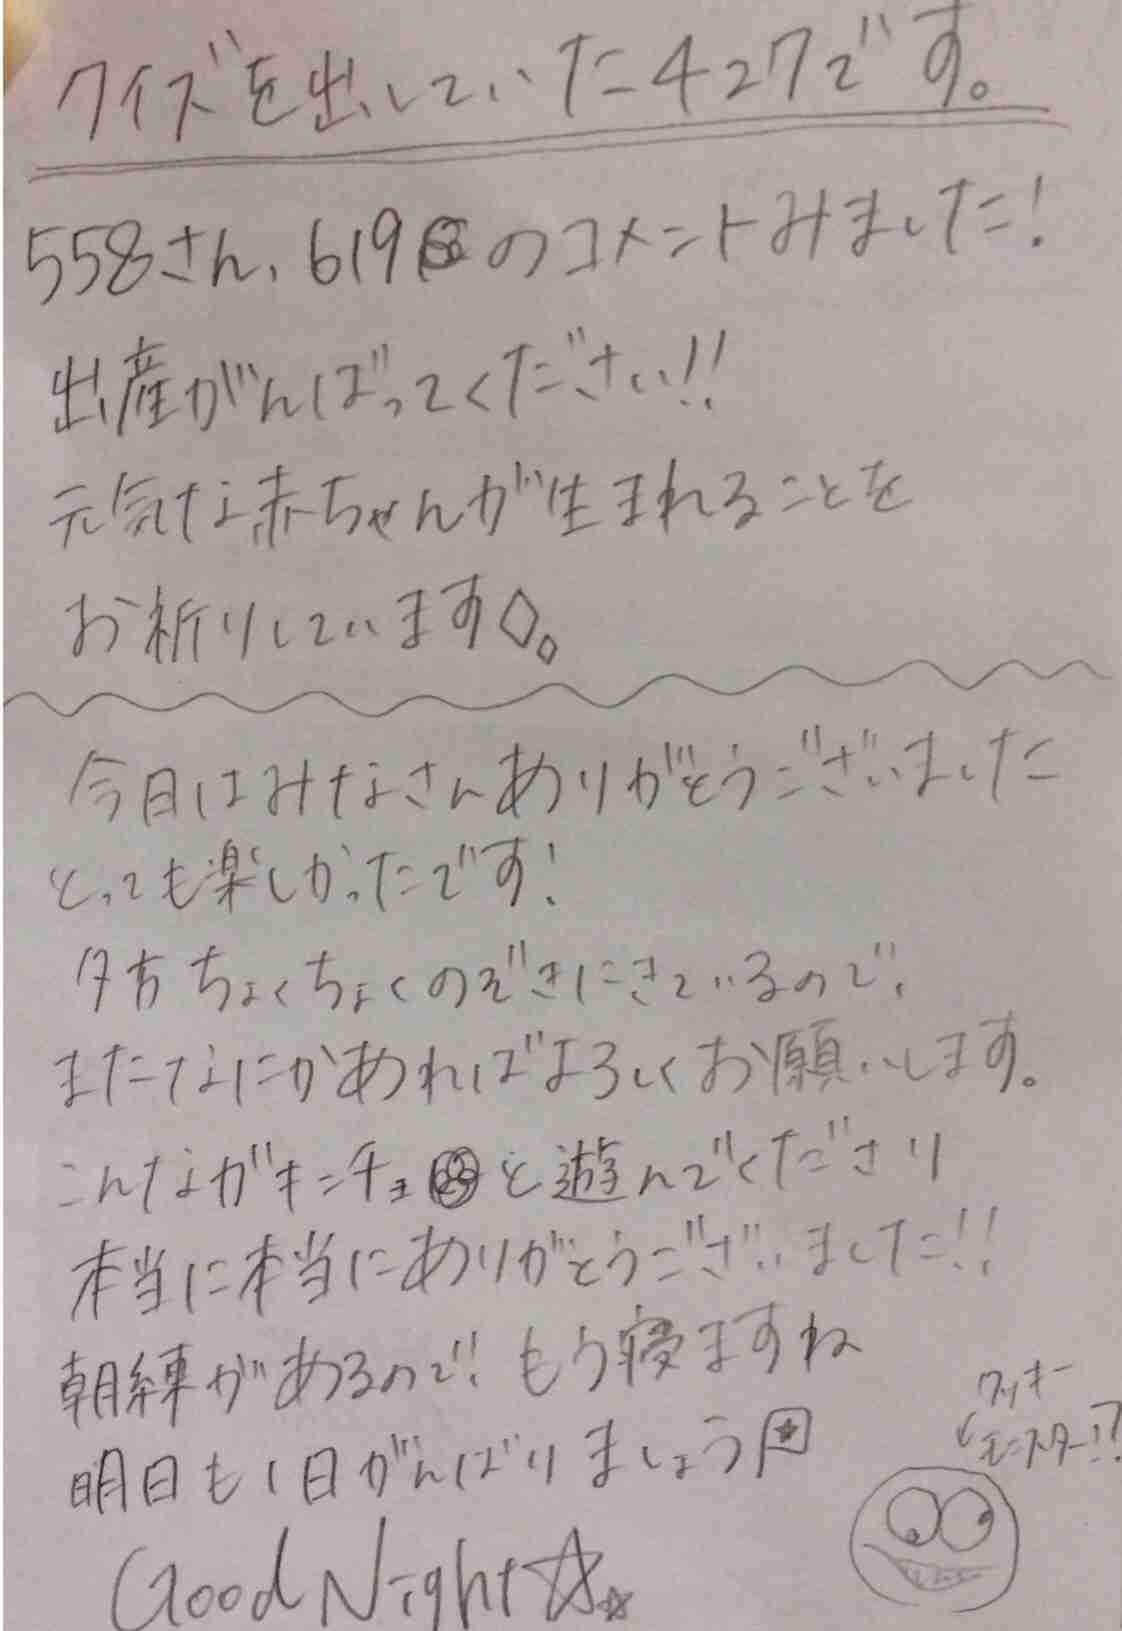 クイズを出していた427です。
558さん、619のコメントみました!
出産がんばってください!!
元気な赤ちゃんが生まれることを
お祈りしています◇。
今日はみなさんありがとうございました
とっても楽しかったです!
夕方ちょくちょくのぞきにきているので、
またなにかあればよろしくお願いします。
こんながキンチョと遊んでくださり
本当に本当にありがとうございました!!
朝練があるので!もう寝ますね
明日も1日がんばりましょう
クッキー
モンスター!?
Good Night☆☆